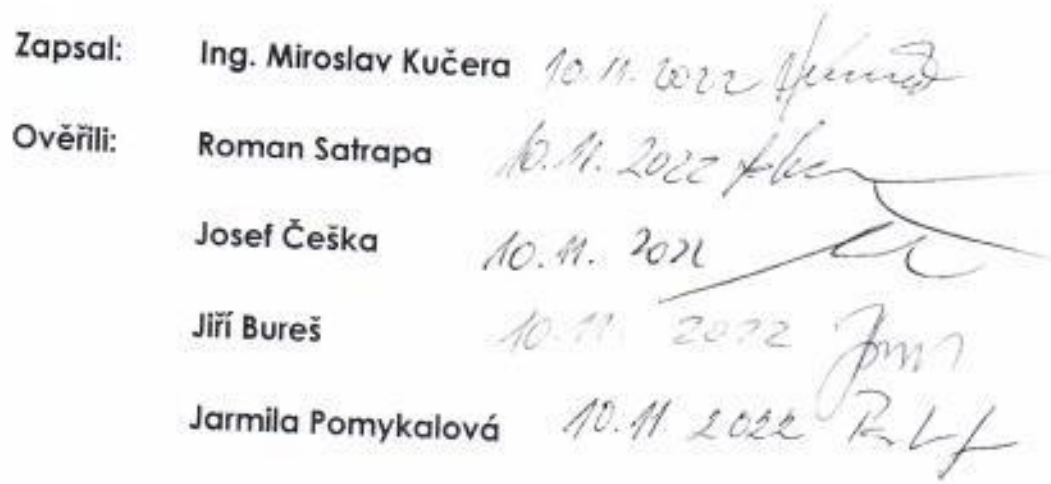 Zapsal: Ing. Miroslav Kučera 10.11.2022
Ověřili: Roman Satrapa 10.11.2022
Josef Češka 10.11. 2022
Jiří Bureš 10.11. 2022
Jarmila Pomykalová 10.11.2022